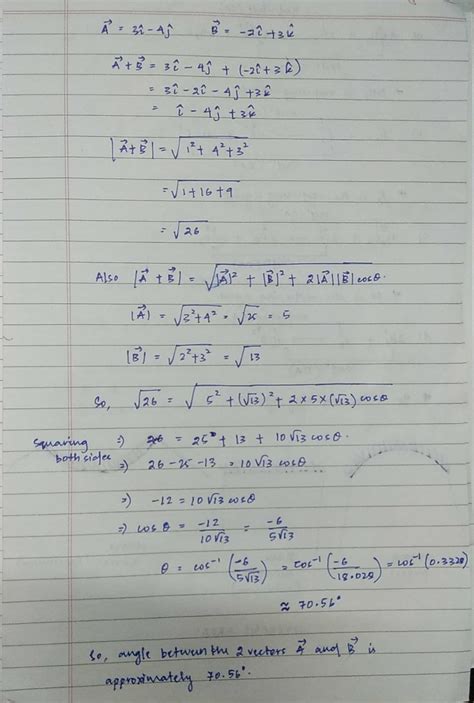 A⃗ = 3î - 4ĵ    B⃗ = -2î + 3k̂
A⃗ + B⃗ = 3î - 4ĵ + (-2î + 3k̂)
= 3î - 2î - 4ĵ + 3k̂
= î - 4ĵ + 3k̂
|A⃗ + B⃗| = √(1² + 4² + 3²)
= √(1 + 16 + 9)
= √26
Also |A⃗ + B⃗| = √(|A⃗|² + |B⃗|² + 2|A⃗||B⃗|cosθ.
|A⃗| = √(3² + 4²) = √25 = 5
|B⃗| = √(2² + 3²) = √13
So, √26 = √(5² + (√13)² + 2 × 5 × (√13) cosθ
Squaring both sides ⇒) 26 = 25 + 13 + 10√13 cosθ.
⇒) 26 - 25 - 13 = 10√13 cosθ
⇒) -12 = 10√13 cosθ
⇒) cos θ = -12/10√13 = -6/5√13
θ = cos⁻¹(-6/5√13) = cos⁻¹(-6/18.028) = cos⁻¹(0.3328)
≈ 70.56°
So, angle between the 2 vectors A⃗ and B⃗ is
approximately 70.56°.